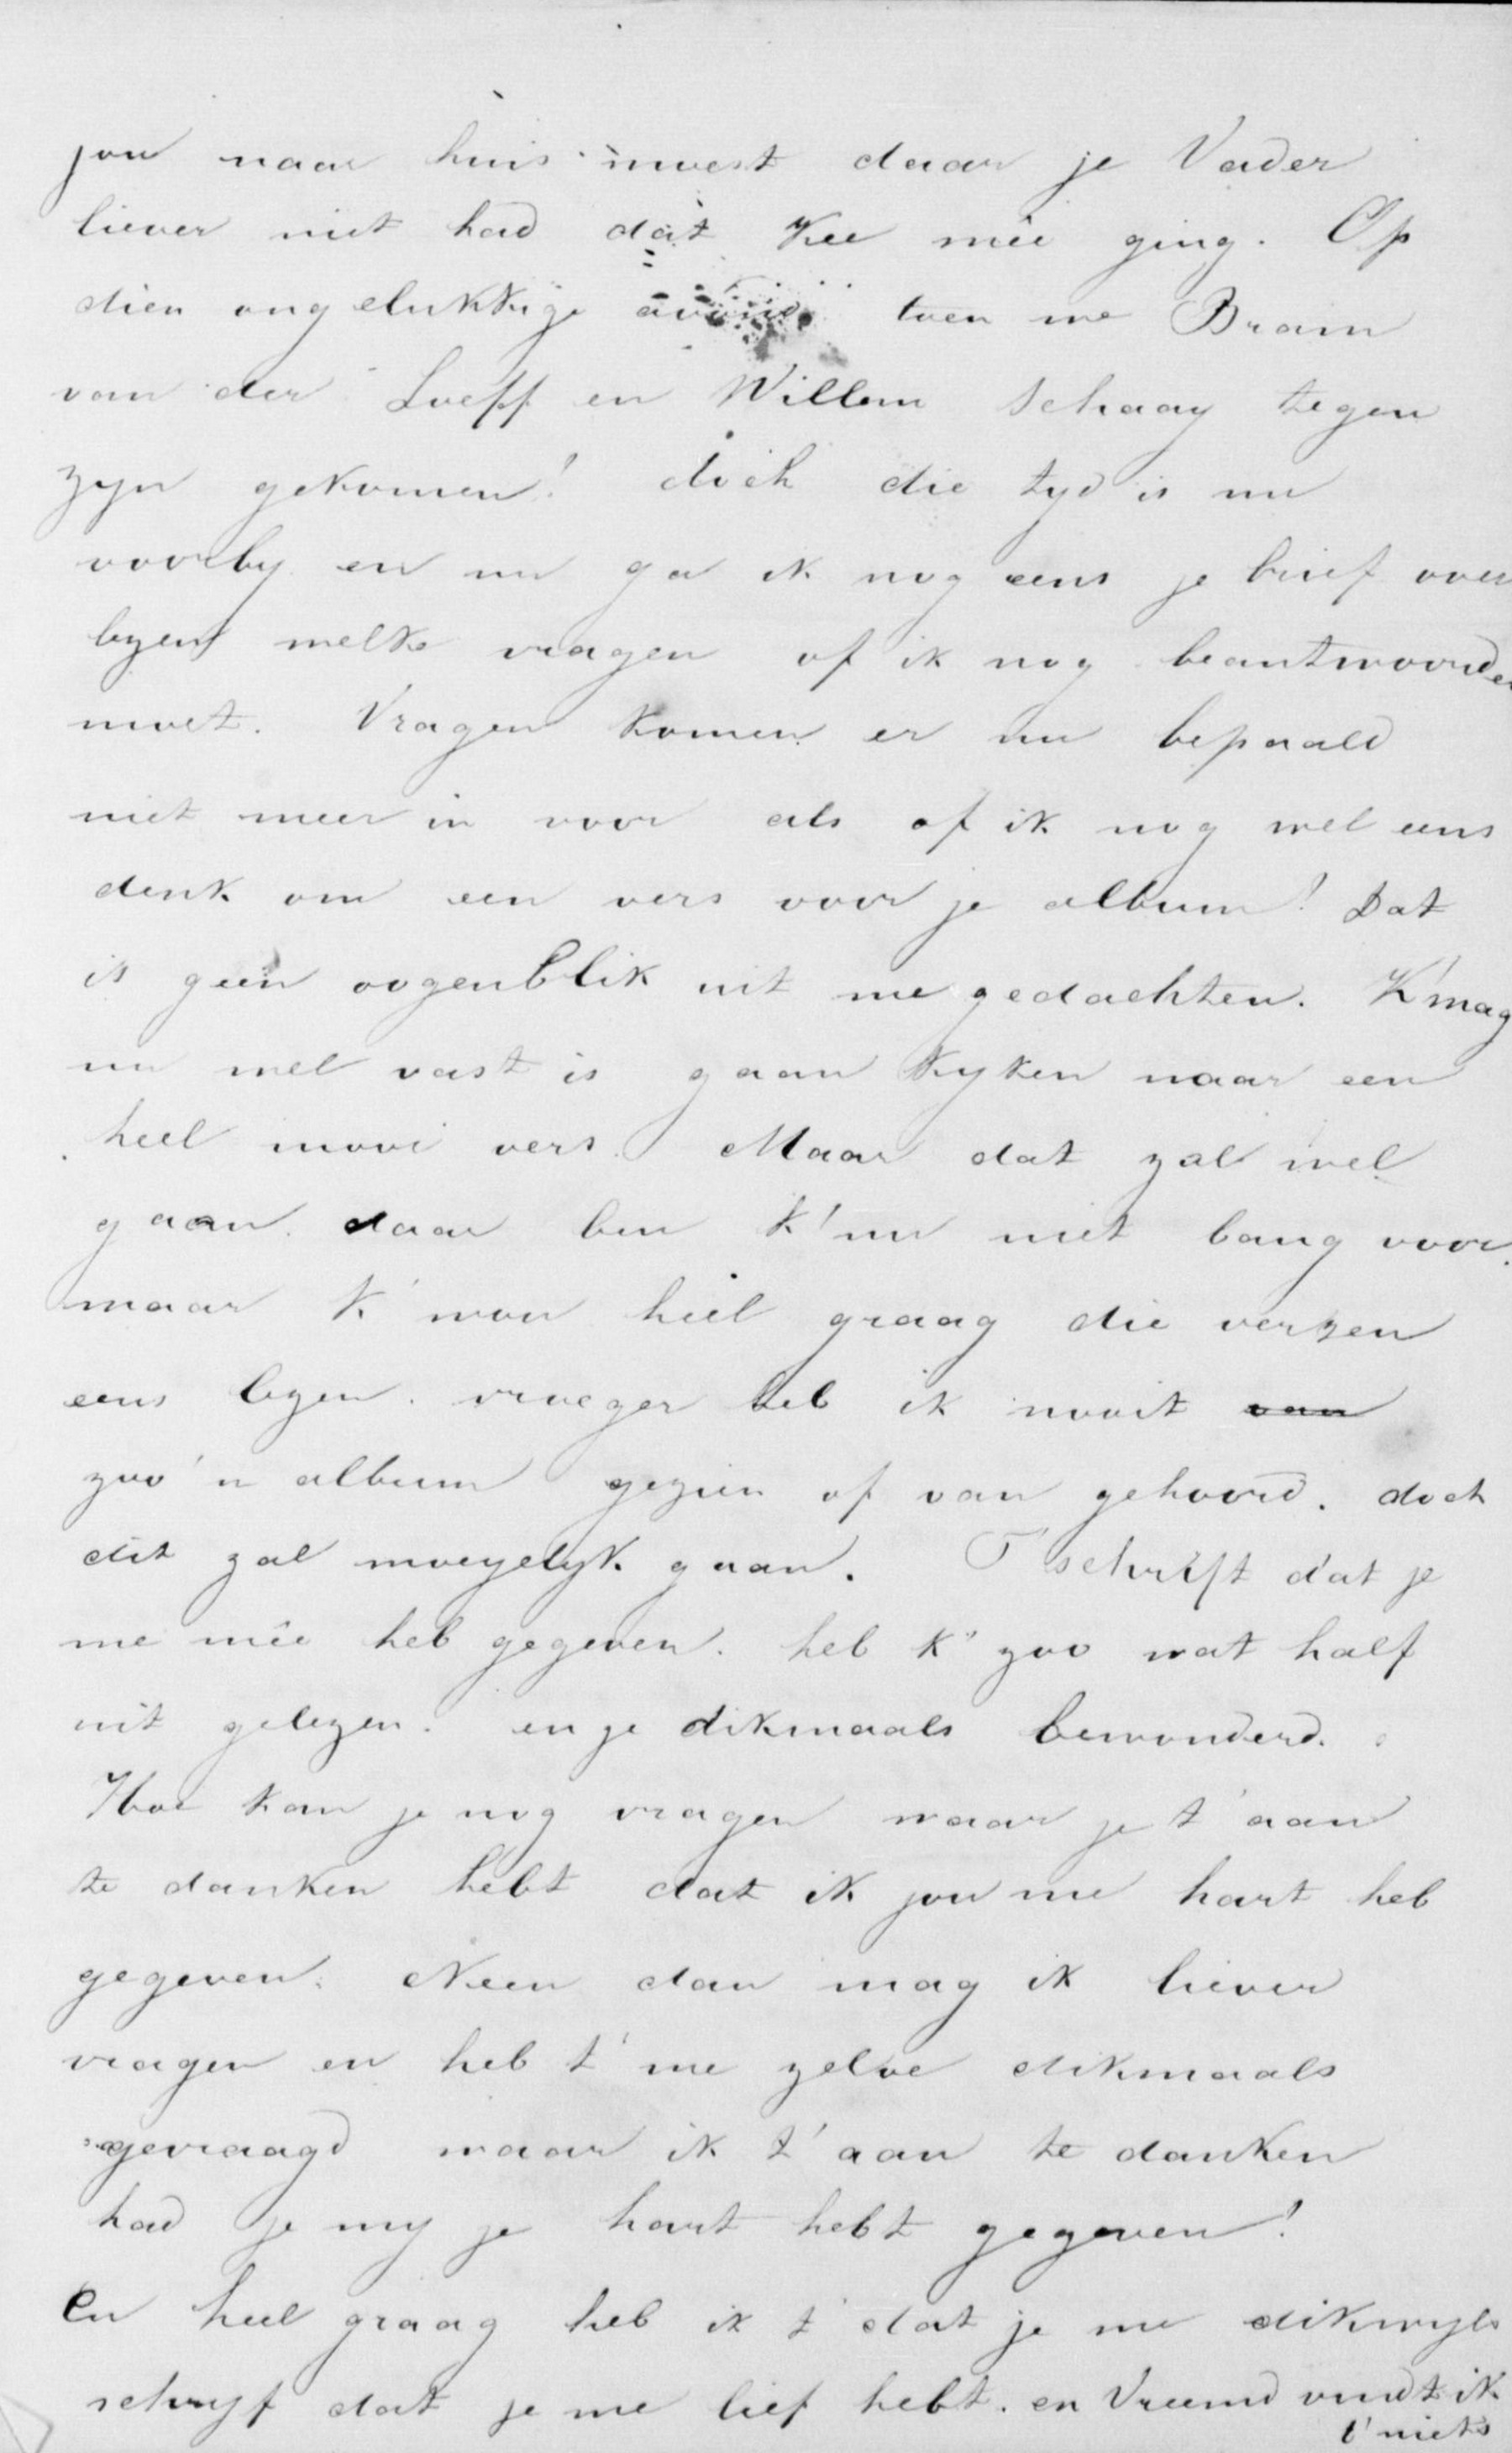 jou naar huis moest daar je Vader
liever niet had dat Kee mêe ging. Op
dien ongelukkige avond toen we Bram
van der Loeff en Willem Schaay tegen
zyn gekomen! doch die tyd is nu
voorby en nu ga ik nog eens je brief over
lezen welke vragen of ik nog beantwoorden
moet. Vragen komen er nu bepaald
niet meer in voor als of ik nog wel eens
denk om een vers voor je album! Dat
is geen oogenblik uit me gedachten. K'mag
nu wel vast is gaan kyken naar een
heel mooi vers. Maar dat zal wel
gaan. daar ben k'nu niet bang voor.
maar k'wou heel graag die verzen
eens lezen. vroeger heb ik nooit van
zoo'n album gezien of van gehoord. doch
dit zal moeyelyk gaan. T'schrift dat je
me mêe heb gegeven. heb k' zoo wat half
uit gelezen. en je dikmaals bewonderd.
Hoe kan je nog vragen waar je t'aan
te danken hebt dat ik jou me hart heb
gegeven. Neen dan mag ik liever
vragen en heb t'me zelve dikmaals
gevraagd waar ik t'aan te danken
had je my je hart hebt gegeven!
En heel graag heb ik t'dat je me dikwyls
schryf dat je me lief hebt. en Vreemd vindt ik
t'niets